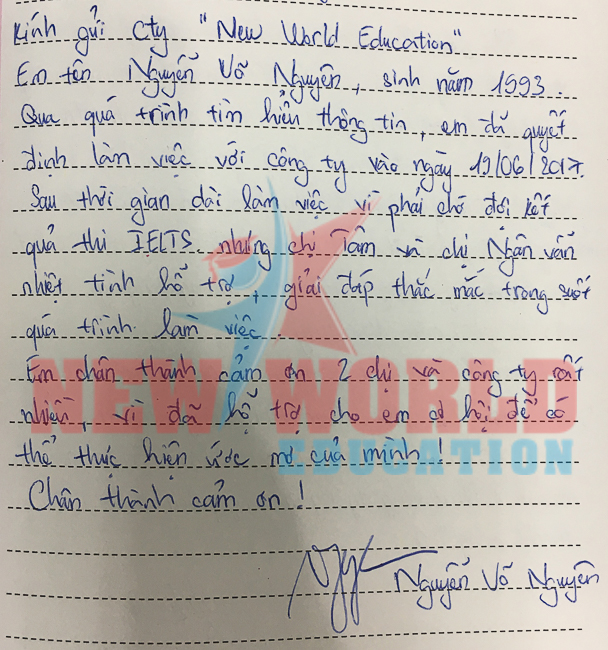 Kính gửi Cty "New World Education"
Em tên Nguyễn Võ Nguyên, sinh năm 1993.
Qua quá trình tìm hiểu thông tin, em đã quyết
định làm việc với công ty vào ngày 19/06/2017.
Sau thời gian dài làm việc vì phải chờ đợi kết
quả thi IELTS nhưng chị Tâm và chị Ngân vẫn
nhiệt tình hỗ trợ, giải đáp thắc mắc trong suốt
quá trình làm việc.
Em chân thành cảm ơn 2 chị và công ty rất
nhiều, vì đã hỗ trợ cho em cơ hội để có
thể thực hiện ước mơ của mình!
Chân thành cảm ơn!
Nguyễn Võ Nguyên
NEW WORLD
EDUCATION